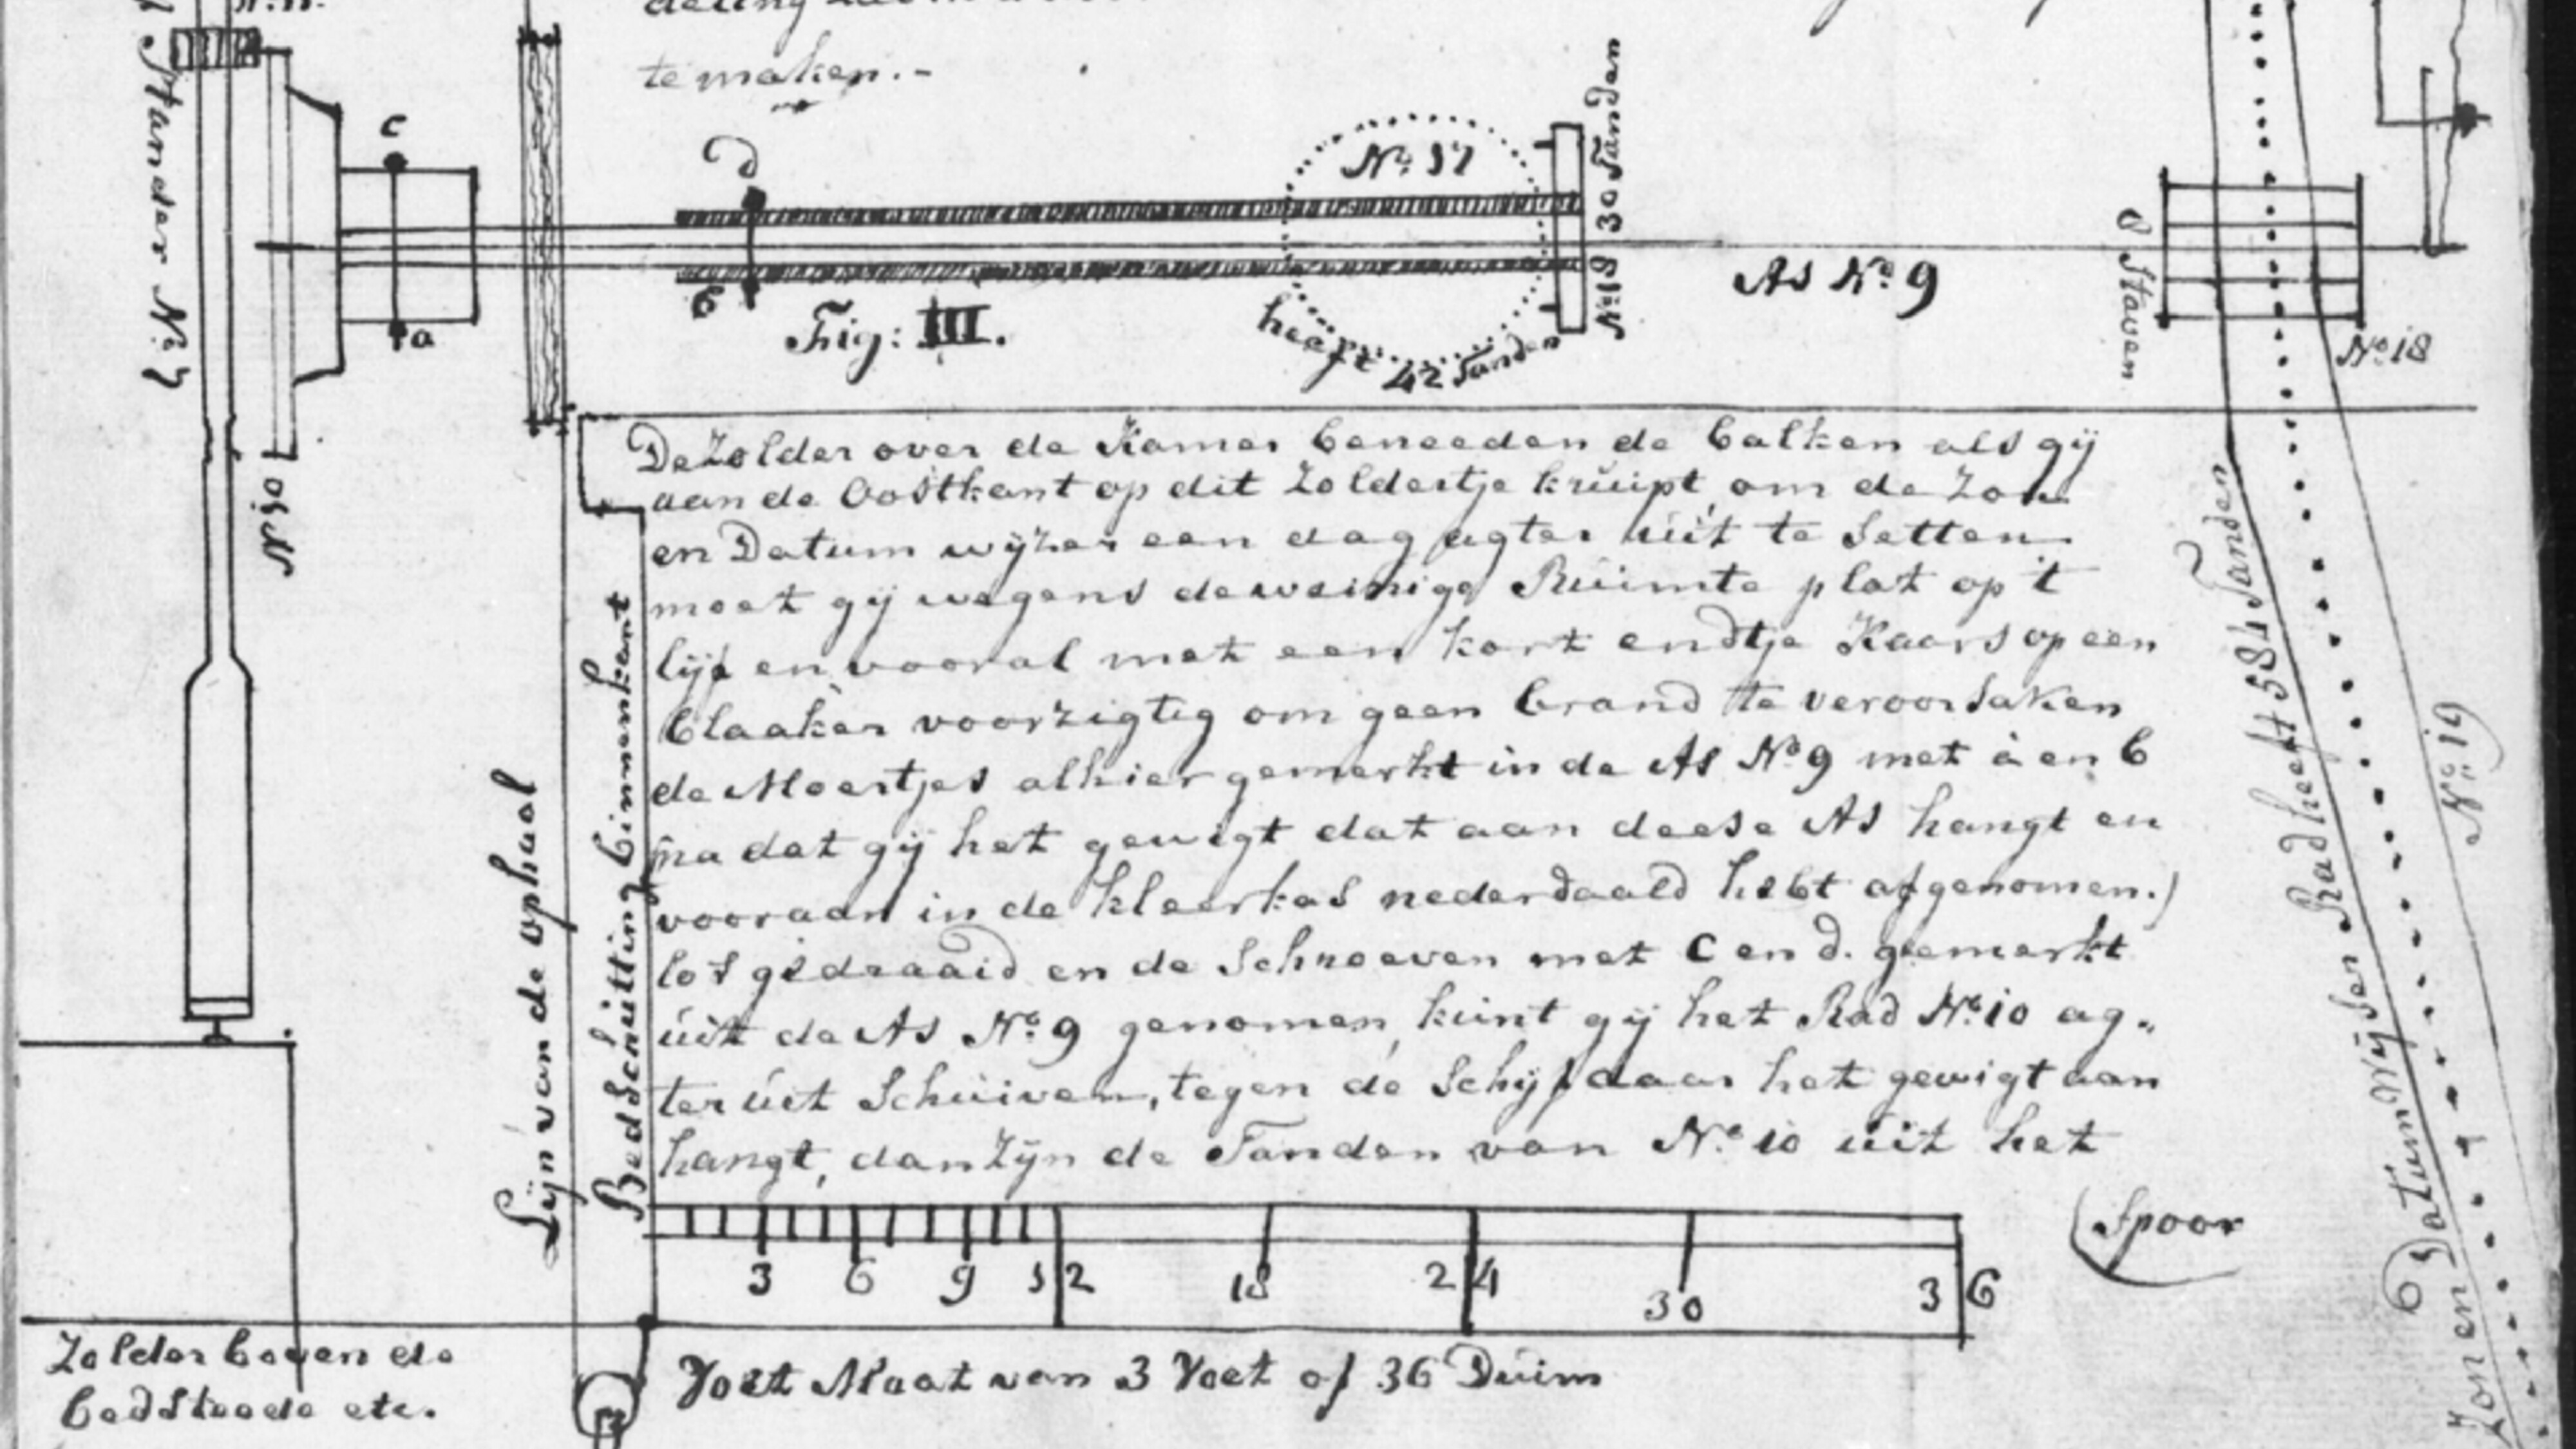 te maken.-
Stander No 7
No 10
c
a
D
b
Fig: III.
No 17
heeft 42 Tanden
No 19 30 Tanden
As No 9
8 Staven
No 18
De Zolder over de Kamer beneeden de balken als gij
aan de Oostkant op dit Zoldertje kruipt, om de Zon
en Datum wijzer een dag agter uit te Setten
moet gij wegens de weinige Ruimte plat op 't
lijf en vooral met een kort endtje Kaars op een
blaaker voorzigtig om geen brand te veroorsaken
de Moertjes alhier gemerkt in de As No 9 met a en b
na dat gij het gewigt dat aan deese As hangt en
vooraan in de kleerkas nederdaald hebt afgenomen.)
los gedraaid en de Schroeven met C en d. gemerkt
uit de As No 9 genomen, kunt gij het Rad No 10 ag„
ter uit Schuiven, tegen de Schijf daar het gewigt aan
hangt, dan Zijn de Tanden van No 10 uit het
(Spoor
Lijn van de ophaal
Bedschutting binnenkant
3 6 9 12 18 24 30 36
Voet Maat van 3 Voet of 36 Duim
Zolder boven de
bedsteede etc.
Zon en Datum Wijser Rad heeft 584 Tanden
No 19